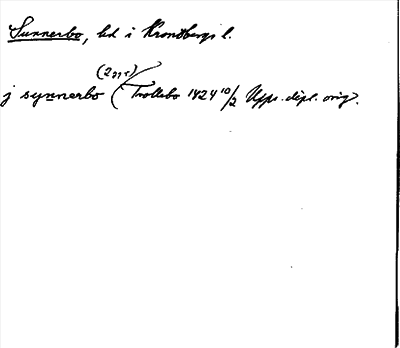 Sunnerbo, hd i Kronobergs l.
(2 ggr)
j synnerbo (Trollebo 1424 10/2 Upps. dipl. orig.